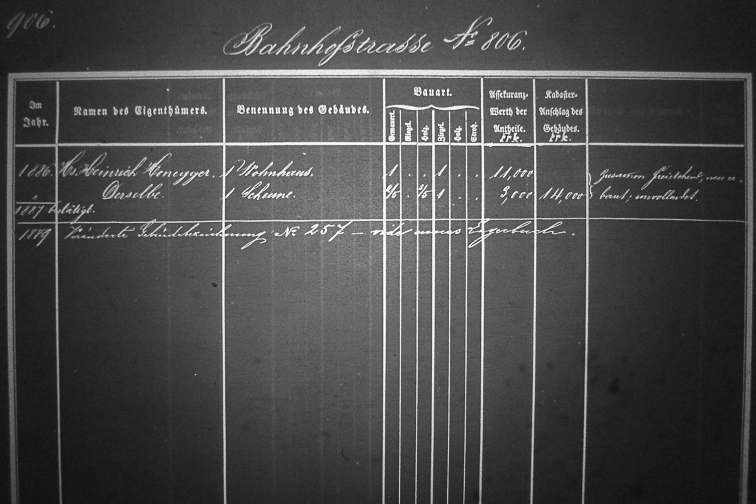 906.
Bahnhofstrasse № 806.
Im Jahr. Namen des Eigenthümers. Benennung des Gebäudes. Bauart. Assekuranz-Werth der Antheile. Frk. Kadaster-Anschlag des Gebäudes. Frk.
Gemauert. Riegel. Holz. Ziegel. Holz. Stroh.
1886. Hs. Heinrich Honegger. 1 Wohnhaus. 1 . . 1 . . 11,000 zusammen freistehend, neu er-
" Derselbe 1 Scheune. 2/5 . 3/5 1 . . 3,000 14,000 baut, unvollendet.
1887 bestätigt.
1889 Veränderte Gebäudebezeichnung № 257 — neues Lagerbuch.